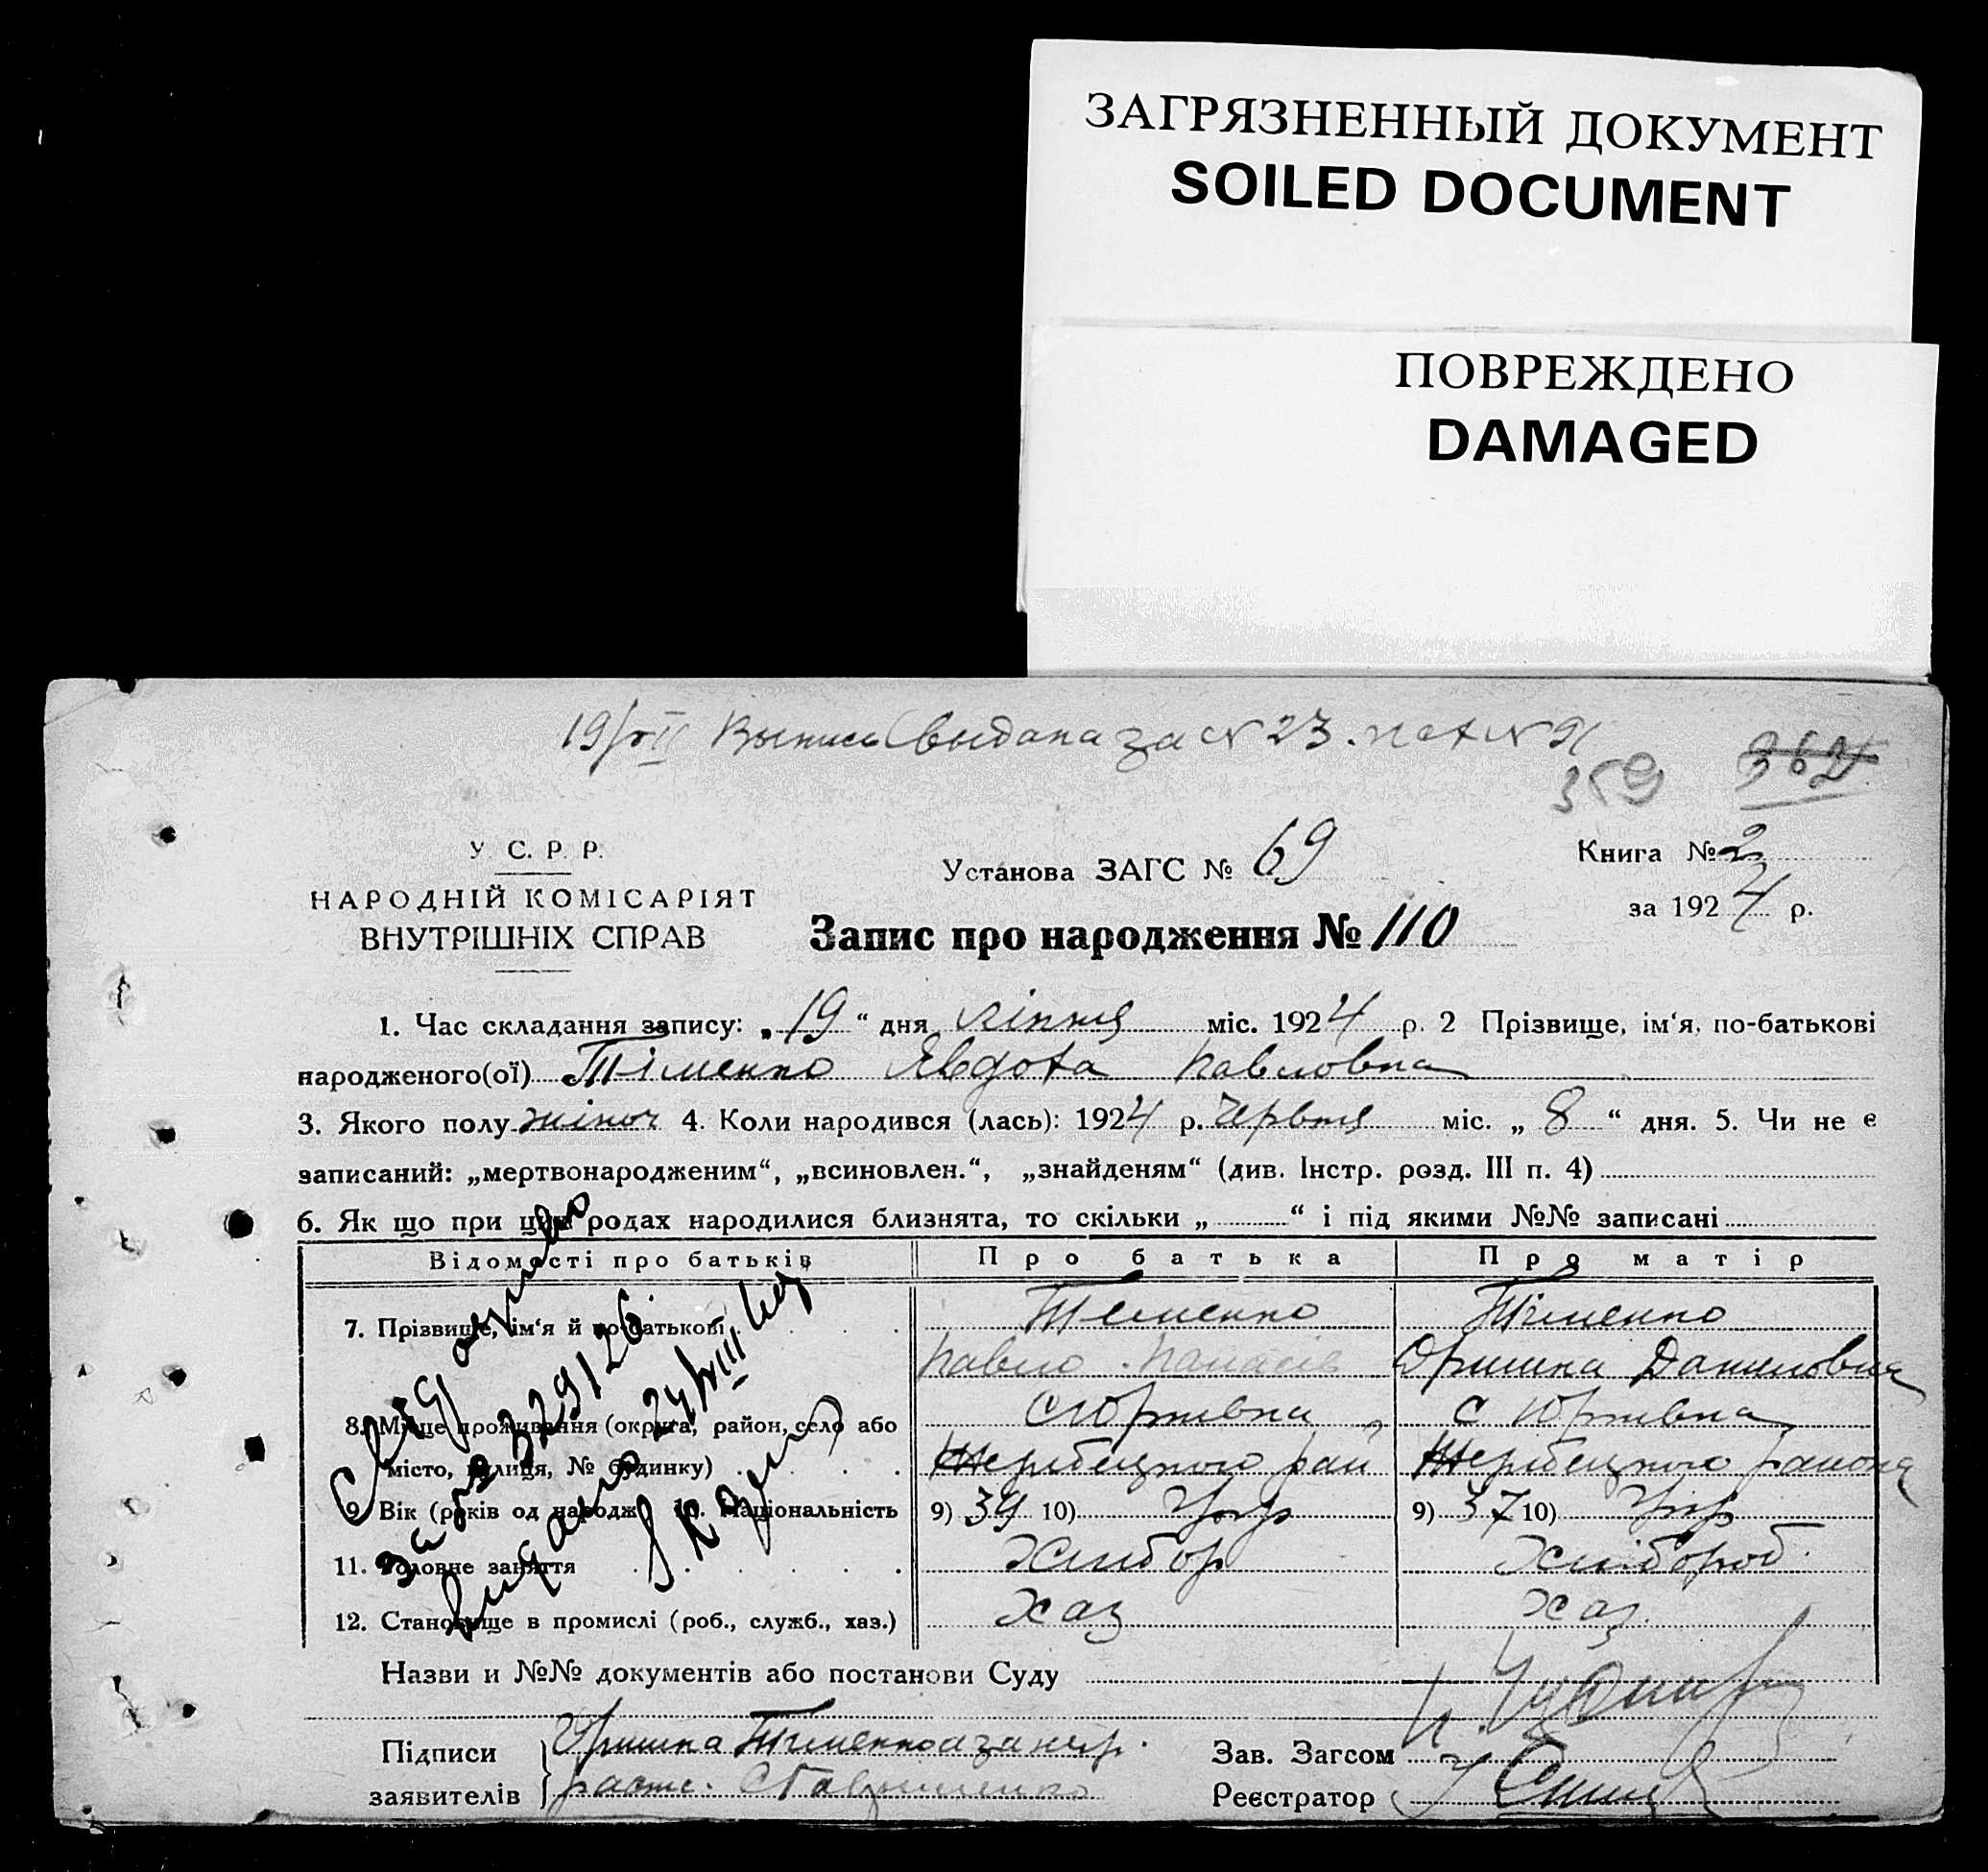 ЗАГРЯЗНЕННЫЙ ДОКУМЕНТ
SOILED DOCUMENT
ПОВРЕЖДЕНО
DAMAGED
19/VII Выпись выдана за № 23.
359 362
У. С. Р. Р.
НАРОДНІЙ КОМІСАРІЯТ
ВНУТРІШНІХ СПРАВ
Установа ЗАГС № 69
Книга № 2
за 1924 р.
Запис про народження № 110
1. Час складання запису: „19“ дня липня міс. 1924 р. 2 Прізвище, ім‘я, по-батькові
народженого(ої) Тіменко Явдоха Павловна
3. Якого полу жіноч 4. Коли народився (лась): 1924 р. Червня міс. „8“ дня. 5. Чи не є
записаний: „мертвонародженим“, „всиновлен.“, „знайденям“ (див. Інстр. розд. III п. 4)
6. Як що при цих родах народилися близнята, то скільки „ “ і під якими №№ записані
Відомості про батьків Про батька Про матір
7. Прізвище, ім‘я й по-батькові Тіменко Тіменко
Павло Панасів Оришка Даниловна
8. Місце проживання (округа, район, село або с Юрківка с Юрківка
місто, вулиця, № будинку) Жеребецкого рай Жеребецкого района
9. Вік (років од народж. 10. Національність 9) 39 10) Укр 9) 37 10) Укр
11. Головне заняття Хлибор Хлібороб.
12. Становище в промислі (роб., служб., хаз.) Хаз Хаз.
Свідоцтво
за № 329/26.
видано 24/VIII
Назви и №№ документів або постанови Суду
Підписи заявителів Оришка Тіменко а за негр.
распс. С Гавриленко
Зав. Загсом
Реєстратор